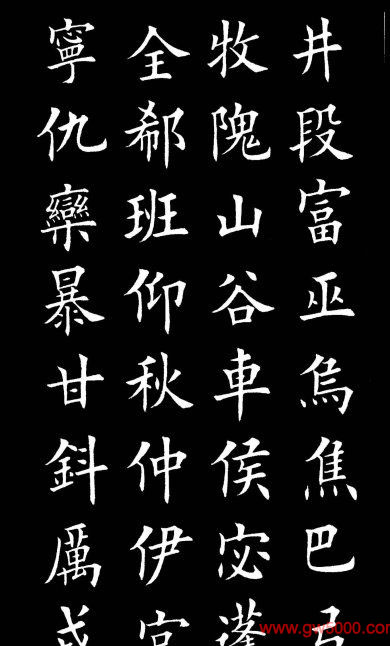 井段富巫烏焦巴
牧隗山谷車侯宓
全郗班仰秋仲伊
寧仇欒暴甘鈄厲
www.gw5000.com